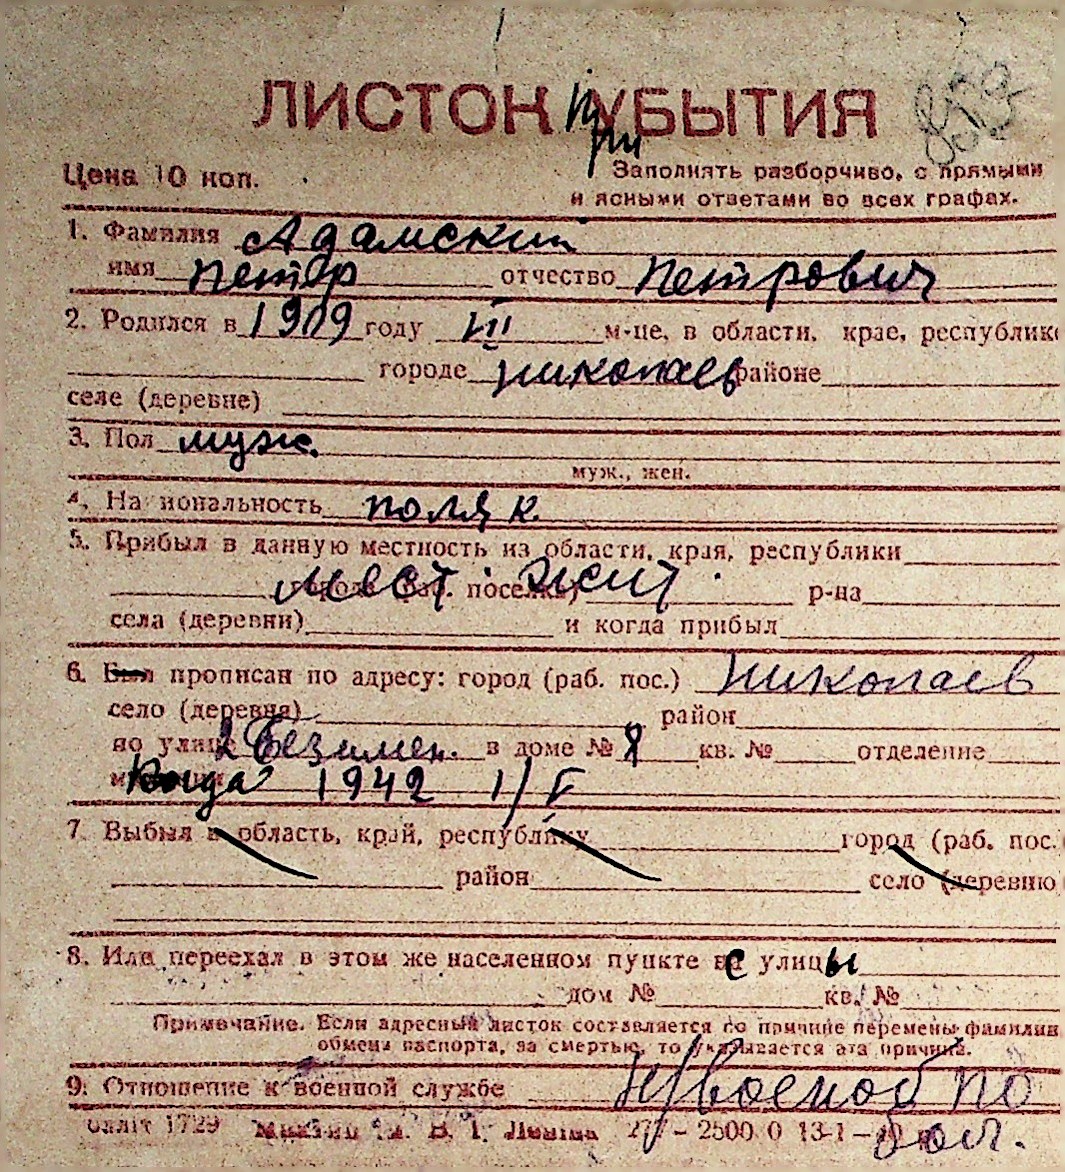 ЛИСТОК при УБЫТИЯ
Цена 10 коп.
Заполнять разборчиво, с прямыми
и ясными ответами во всех графах.
1. Фамилия Адамский
имя Петер отчество Петрович
2. Родился в 1909 году III м-це, в области, крае, республике
городе Николаев районе
селе (деревне)
3. Пол муж.
муж., жен.
4. Национальность поляк
5. Прибыл в данную местность из области, края, республики
города (раб. поселка) мест. жит. р-на
села (деревни) и когда прибыл
6. Был прописан по адресу: город (раб. пос.) Николаев
село (деревня) район
по улице 2 Безимен. в доме № 8 кв. № отделение
Когда 1942 1/V
7. Выбыл в область, край, республику город (раб. пос.)
район село (деревню)
8. Или переехал в этом же населенном пункте с улицы
дом № кв. №
Примечание. Если адресный листок составляется по причине перемены фамилии
обмена паспорта, за смертью, то указывается эта причина.
9. Отношение к военной службе н/военоб по
бол.
1729 В. І. Леніна 2500 0 13-1